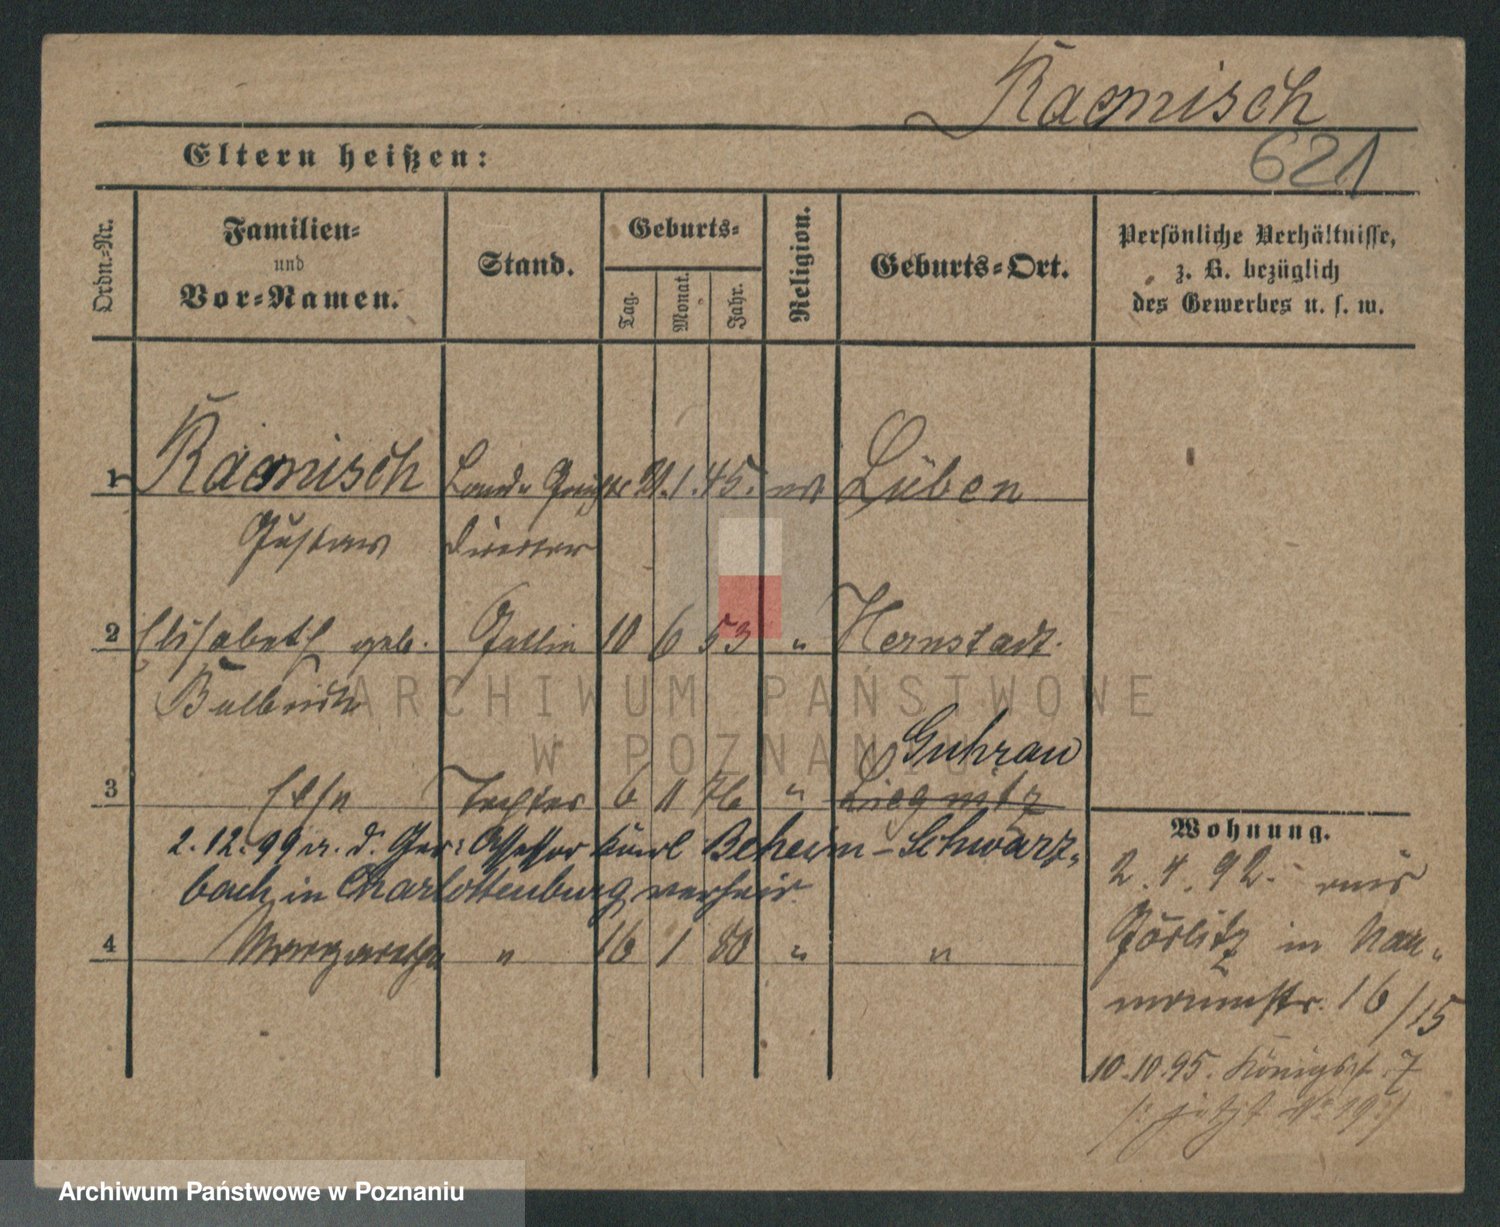 Kaemisch
621
Eltern heißen:
Ordn.-Nr.
Familien-
und
Vor-Namen.
Stand.
Geburts-
Tag.
Monat.
Jahr.
Religion.
Geburts-Ort.
Persönliche Verhältnisse,
z. B. bezüglich
des Gewerbes u. s. w.
1 Kaemisch Land- 1. 45. ev Lüben
Gustav Director
2 Elisabeth geb. Gattin 10 6 53 " Hernstadt.
Guhrau
3 Else Tochter 6 11 76 " Liegnitz
2.12.99 a. d. Ger: Assessor Karl Beheim-Schwarz-
bach in Charlottenburg verheir.
4 Margarethe " 16 1 80 " "
Wohnung.
2.4.92. aus
Görlitz in Nau-
mannstr. 16/15
10.10.95. Königspl. 7
/: jetzt No 19 :/
ARCHIWUM PAŃSTWOWE
W POZNANIU
Archiwum Państwowe w Poznaniu